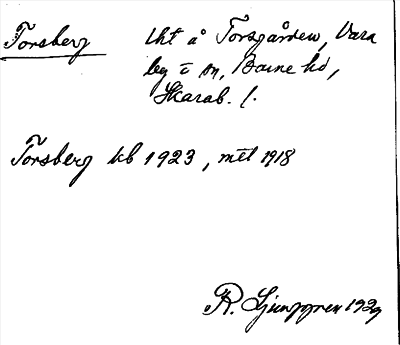 Torsberg    lht å Torsgården, Vara
lbg o sn, Barne hd,
Skarab. l.
Torsberg kb 1923, mtl 1918
R. Ljunggren 1929